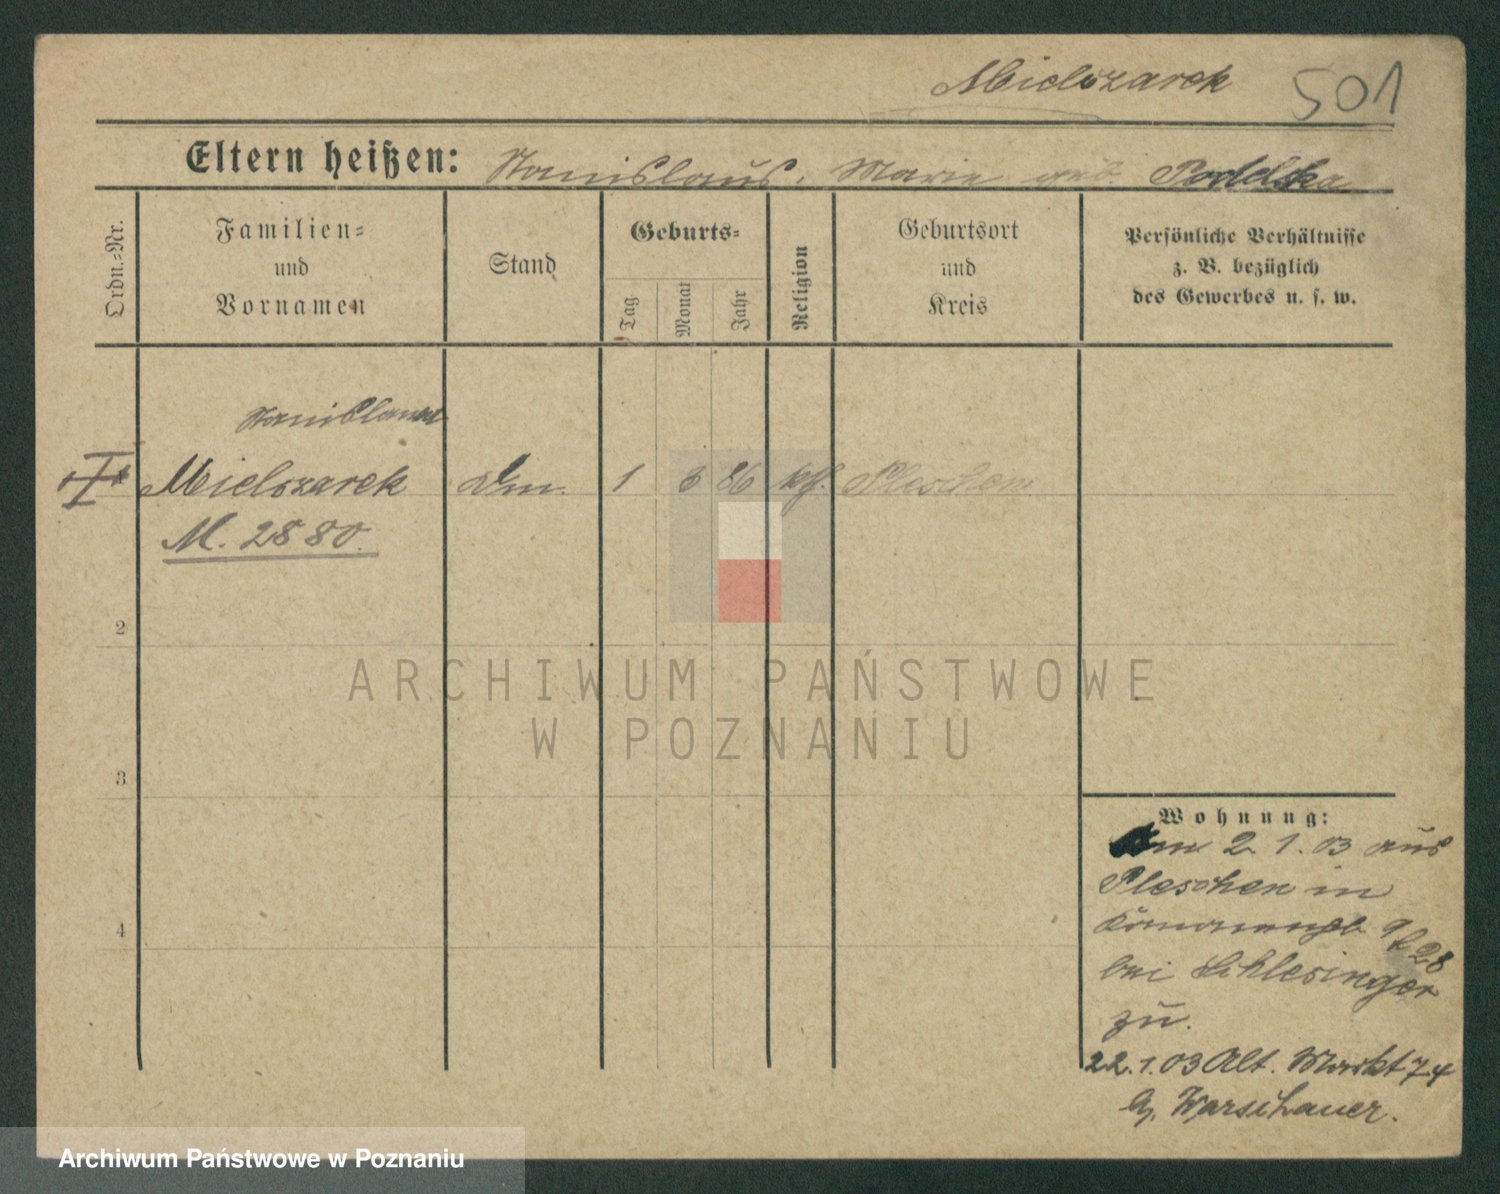 Mielszarek 501
Eltern heißen: Stanislaus, Marie geb.
Ordn.-Nr.
Familien-
und
Vornamen
Stand
Geburts-
Tag
Monat
Jahr
Religion
Geburtsort
und
Kreis
Persönliche Verhältnisse
z. B. bezüglich
des Gewerbes u. s. w.
Mielszarek 1 3 86 kth. Pleschen
M. 2880.
2
3
4
ARCHIWUM PAŃSTWOWE
W POZNANIU
Wohnung:
Am 2. 1. 03 aus
Pleschen in
bei Schlesinger
zu.
22.1.03 Alt. Markt 74
b. Warschauer.
Archiwum Państwowe w Poznaniu